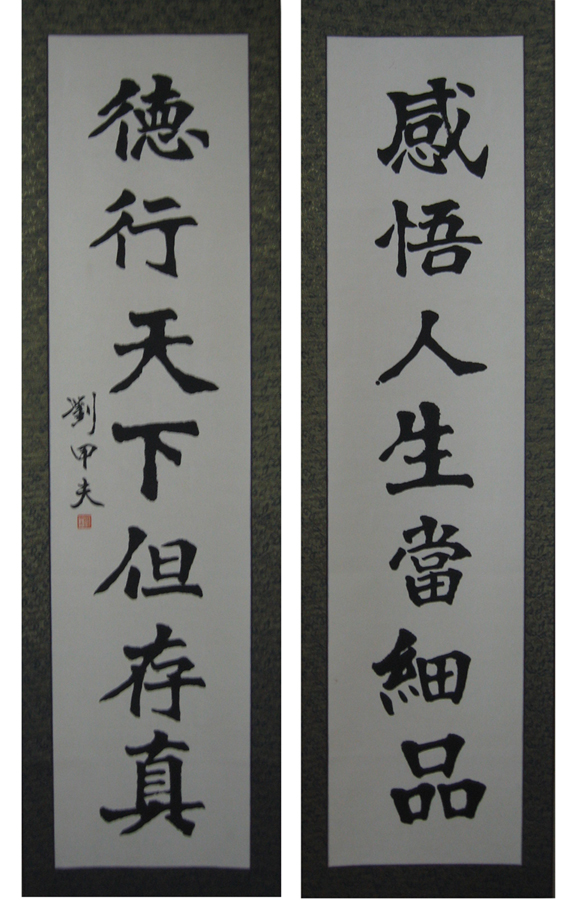 感悟人生當細品
德行天下但存真
劉甲夫